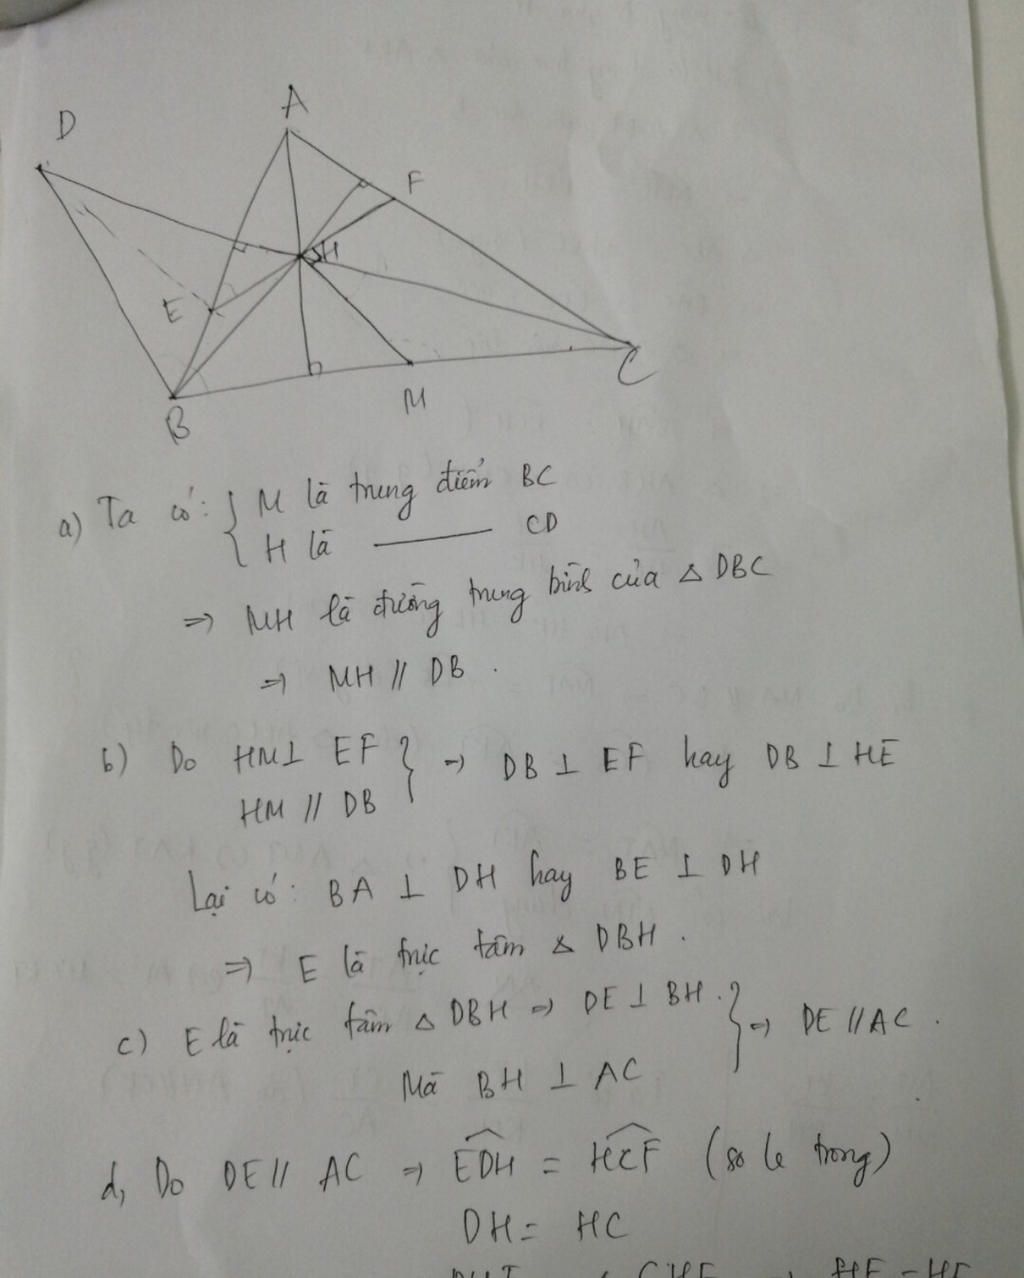 D
A
F
H
E
B
M
C
a) Ta có: { M là trung điểm BC
H là ——— CD
=> MH là đường trung bình của △ DBC
=> MH // DB.
b) Do HM ⊥ EF } => DB ⊥ EF hay DB ⊥ HE
HM // DB
Lại có: BA ⊥ DH hay BE ⊥ DH
=> E là trực tâm △ DBH.
c) E là trực tâm △ DBH => DE ⊥ BH. } => DE // AC.
Mà BH ⊥ AC
d, Do DE // AC => \widehat{EDH} = \widehat{HCF} (so le trong)
DH = HC